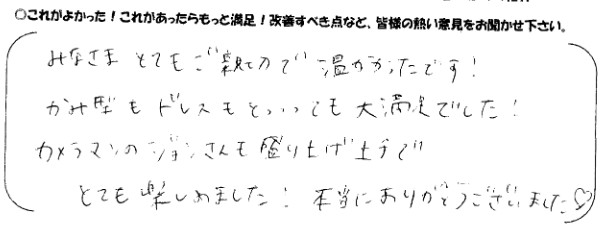 ○これがよかった！これがあったらもっと満足！改善すべき点など、皆様の熱い意見をお聞かせ下さい。
みなさま とても ご親切で 温かかったです！
かみ型も ドレスも とっっても 大満足でした！
カメラマンの ジョンさんも 盛り上げ上手で
とても 楽しめました！ 本当に ありがとうございました♡